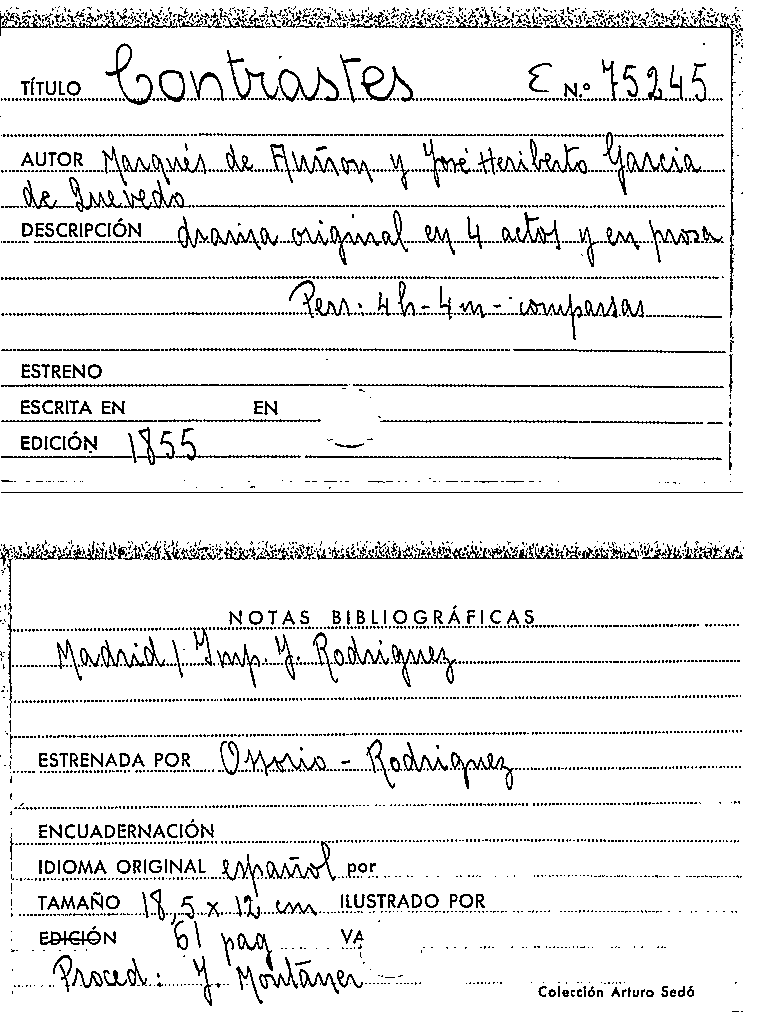 TÍTULO Contrastes E N.º 75245
AUTOR Marqués de Auñon y José Heriberto Garcia
de Quevedo
DESCRIPCIÓN drama original en 4 actos y en prosa
Pers: 4 h - 4 m - comparsas
ESTRENO
ESCRITA EN EN
EDICIÓN 1855
NOTAS BIBLIOGRÁFICAS
Madrid / Imp. J. Rodriguez
ESTRENADA POR Ossorio - Rodriguez
ENCUADERNACIÓN
IDIOMA ORIGINAL español por
TAMAÑO 18,5 x 12 cm ILUSTRADO POR
EDICIÓN 61 pag VA
Proced: J. Montaner
Colección Arturo Sedó